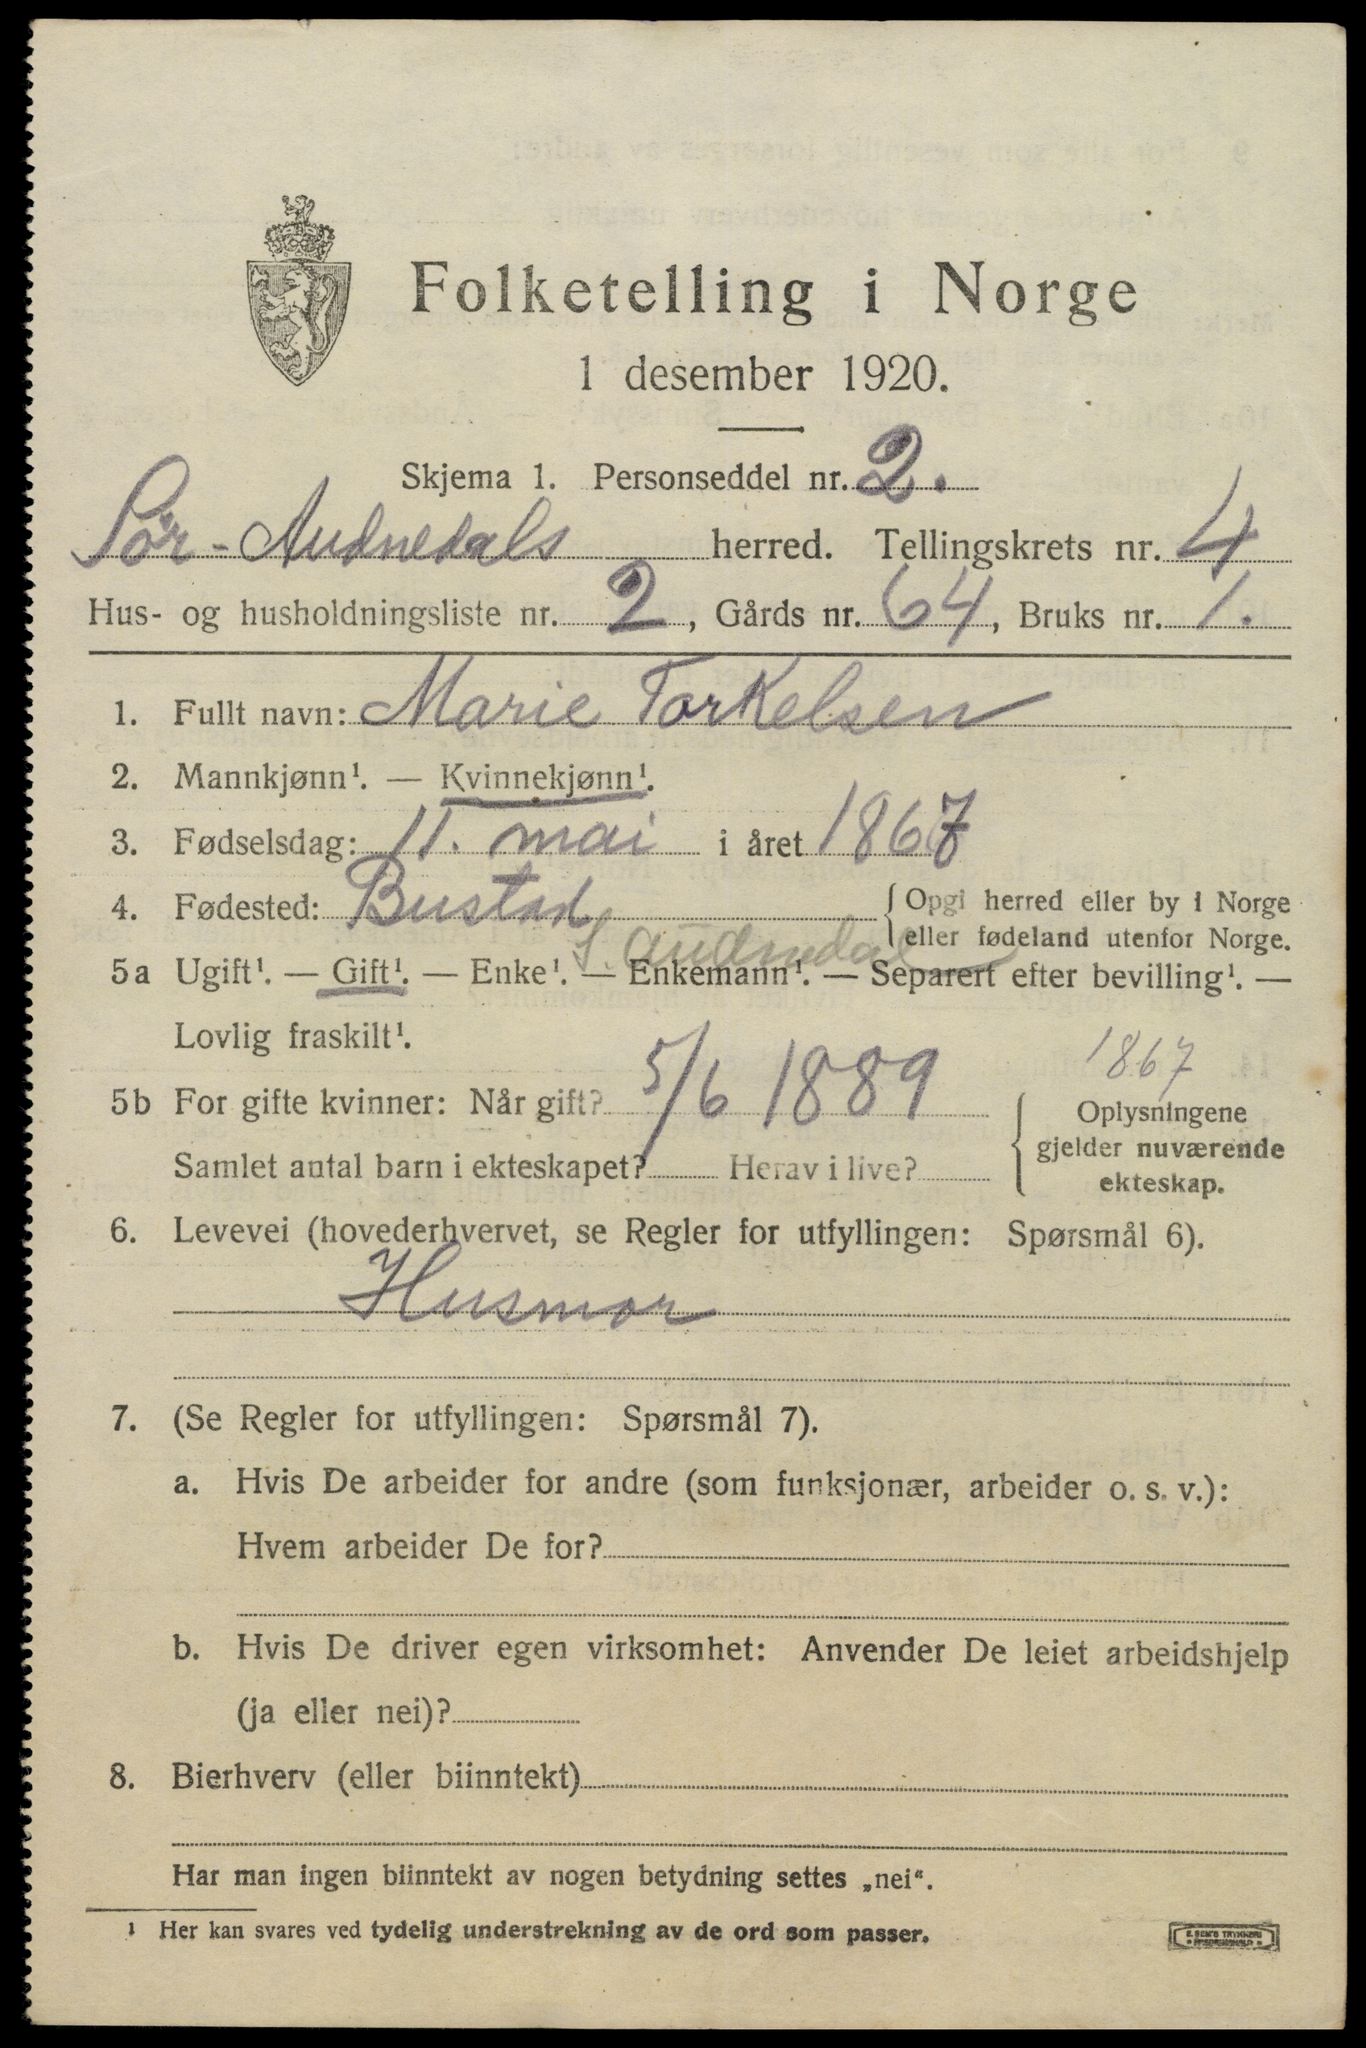 Folketelling i Norge
1 desember 1920.
Skjema 1. Personseddel nr. 2.
Sør-Audnedals herred. Tellingskrets nr. 4
Hus- og husholdningsliste nr. 2, Gårds nr. 64, Bruks nr. 1.
1. Fullt navn: Marie Torkelsen
2. Mannkjønn¹. — Kvinnekjønn¹.
3. Fødselsdag: 11. mai i året 1867
4. Fødested: Bustad { Opgi herred eller by i Norge
eller fødeland utenfor Norge.
S. Audnedal
5a Ugift¹. — Gift¹. — Enke¹. — Enkemann¹. — Separert efter bevilling¹. —
Lovlig fraskilt¹.
1867
5b For gifte kvinner: Når gift? 5/6 1889
Samlet antal barn i ekteskapet? Herav i live?
Oplysningene
gjelder nuværende
ekteskap.
6. Levevei (hovederhvervet, se Regler for utfyllingen: Spørsmål 6).
Husmor
7. (Se Regler for utfyllingen: Spørsmål 7).
a. Hvis De arbeider for andre (som funksjonær, arbeider o. s. v.):
Hvem arbeider De for?
b. Hvis De driver egen virksomhet: Anvender De leiet arbeidshjelp
(ja eller nei)?
8. Bierhverv (eller biinntekt)
Har man ingen biinntekt av nogen betydning settes „nei".
¹ Her kan svares ved tydelig understrekning av de ord som passer.